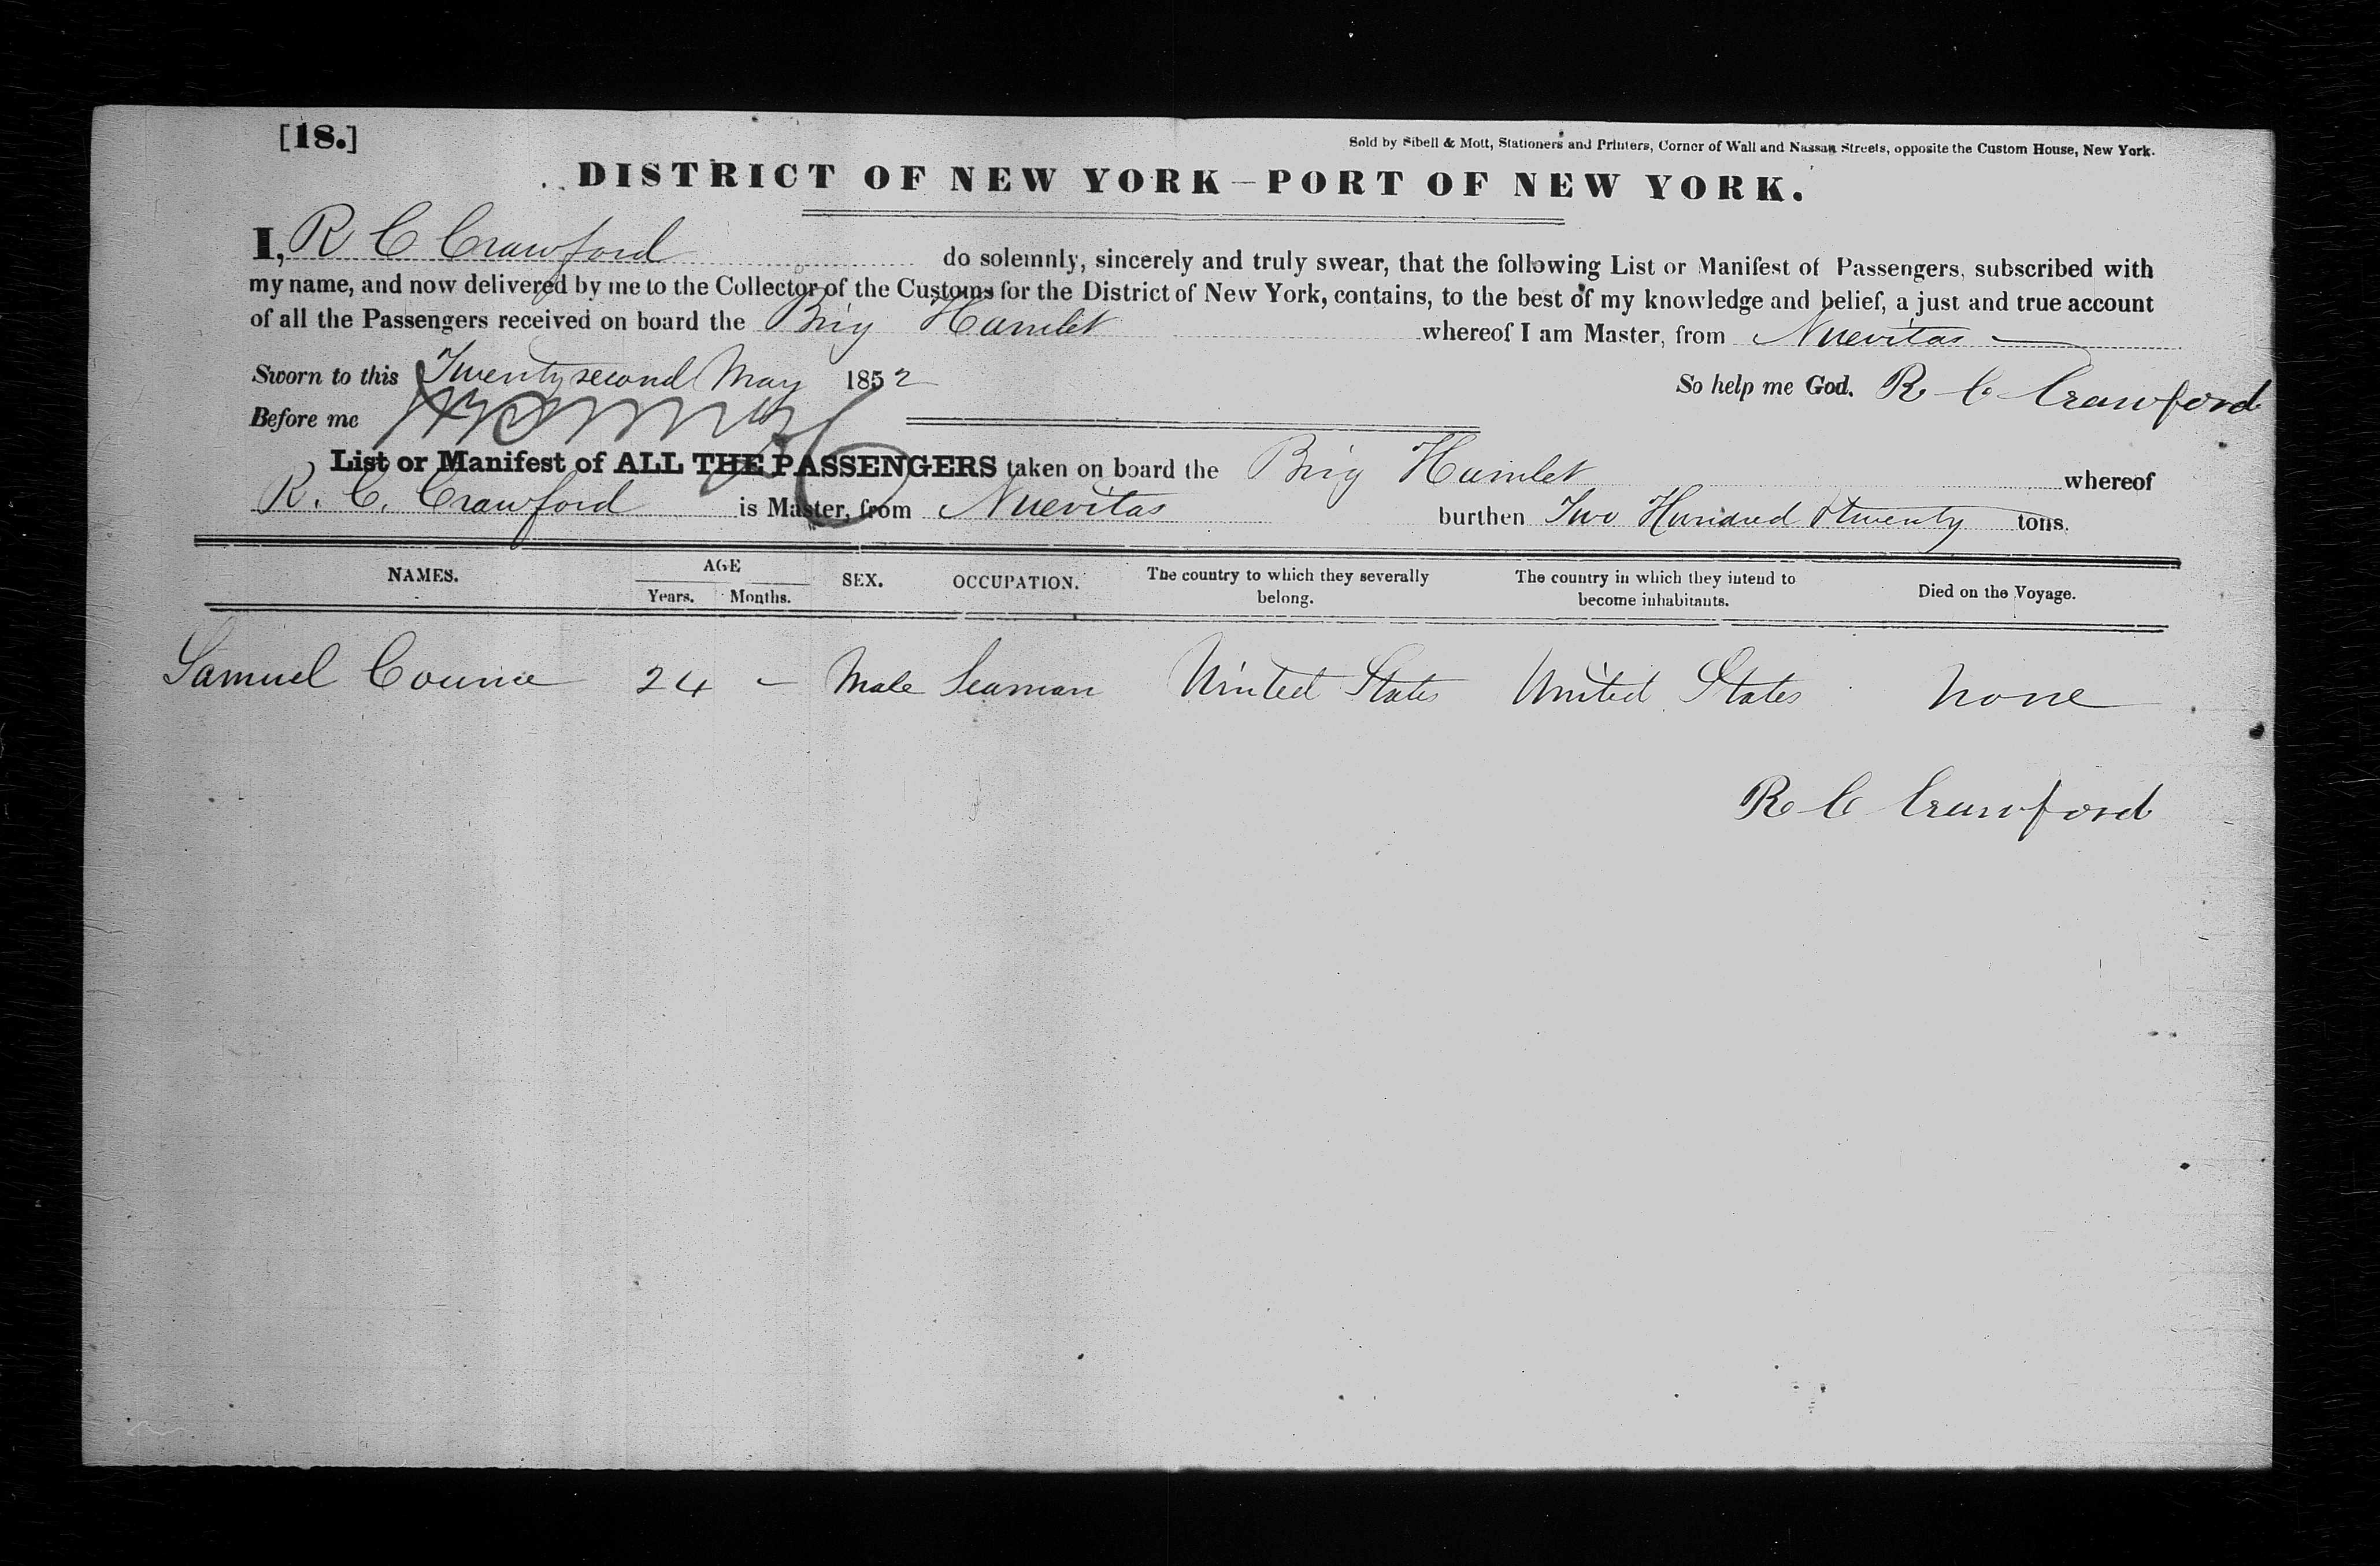 [18.]
Sold by Sibell & Mott, Stationers and Printers, Corner of Wall and Nassau Streets, opposite the Custom House, New York.
DISTRICT OF NEW YORK—PORT OF NEW YORK.
I, R C Crawford do solemnly, sincerely and truly swear, that the following List or Manifest of Passengers, subscribed with
my name, and now delivered by me to the Collector of the Customs for the District of New York, contains, to the best of my knowledge and belief, a just and true account
of all the Passengers received on board the Brig Hamlet whereof I am Master, from Nuevitas
Sworn to this Twenty second May 1852 So help me God. R C Crawford
Before me
List or Manifest of ALL THE PASSENGERS taken on board the Brig Hamlet whereof
R. C. Crawford is Master, from Nuevitas burthen Two Hundred & twenty tons.
NAMES. AGE Years. Months. SEX. OCCUPATION. The country to which they severally belong. The country in which they intend to become inhabitants. Died on the Voyage.
Samuel 24 – Male Seaman United States United States None
R C Crawford